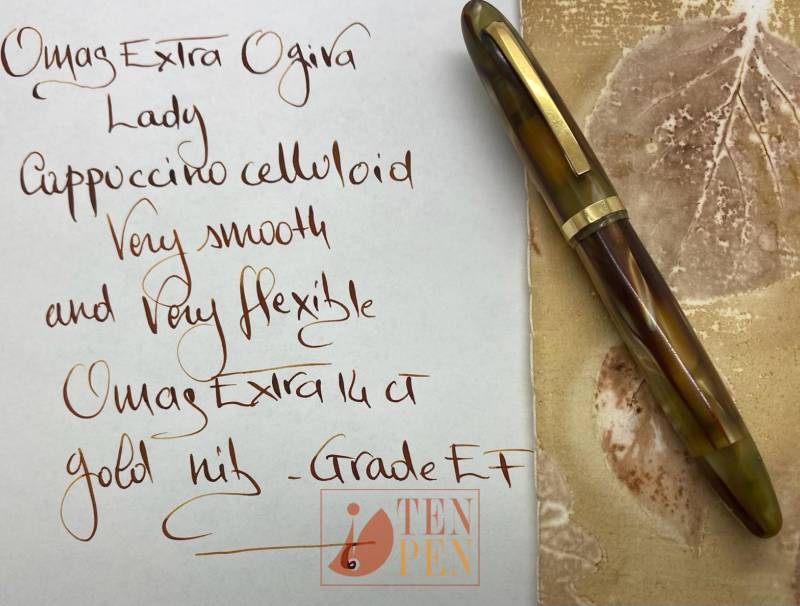 Omas Extra Ogiva
Lady
Cappuccino celluloid
Very smooth
and very flexible
Omas Extra 14 ct
gold nib - Grade EF
TEN
PEN